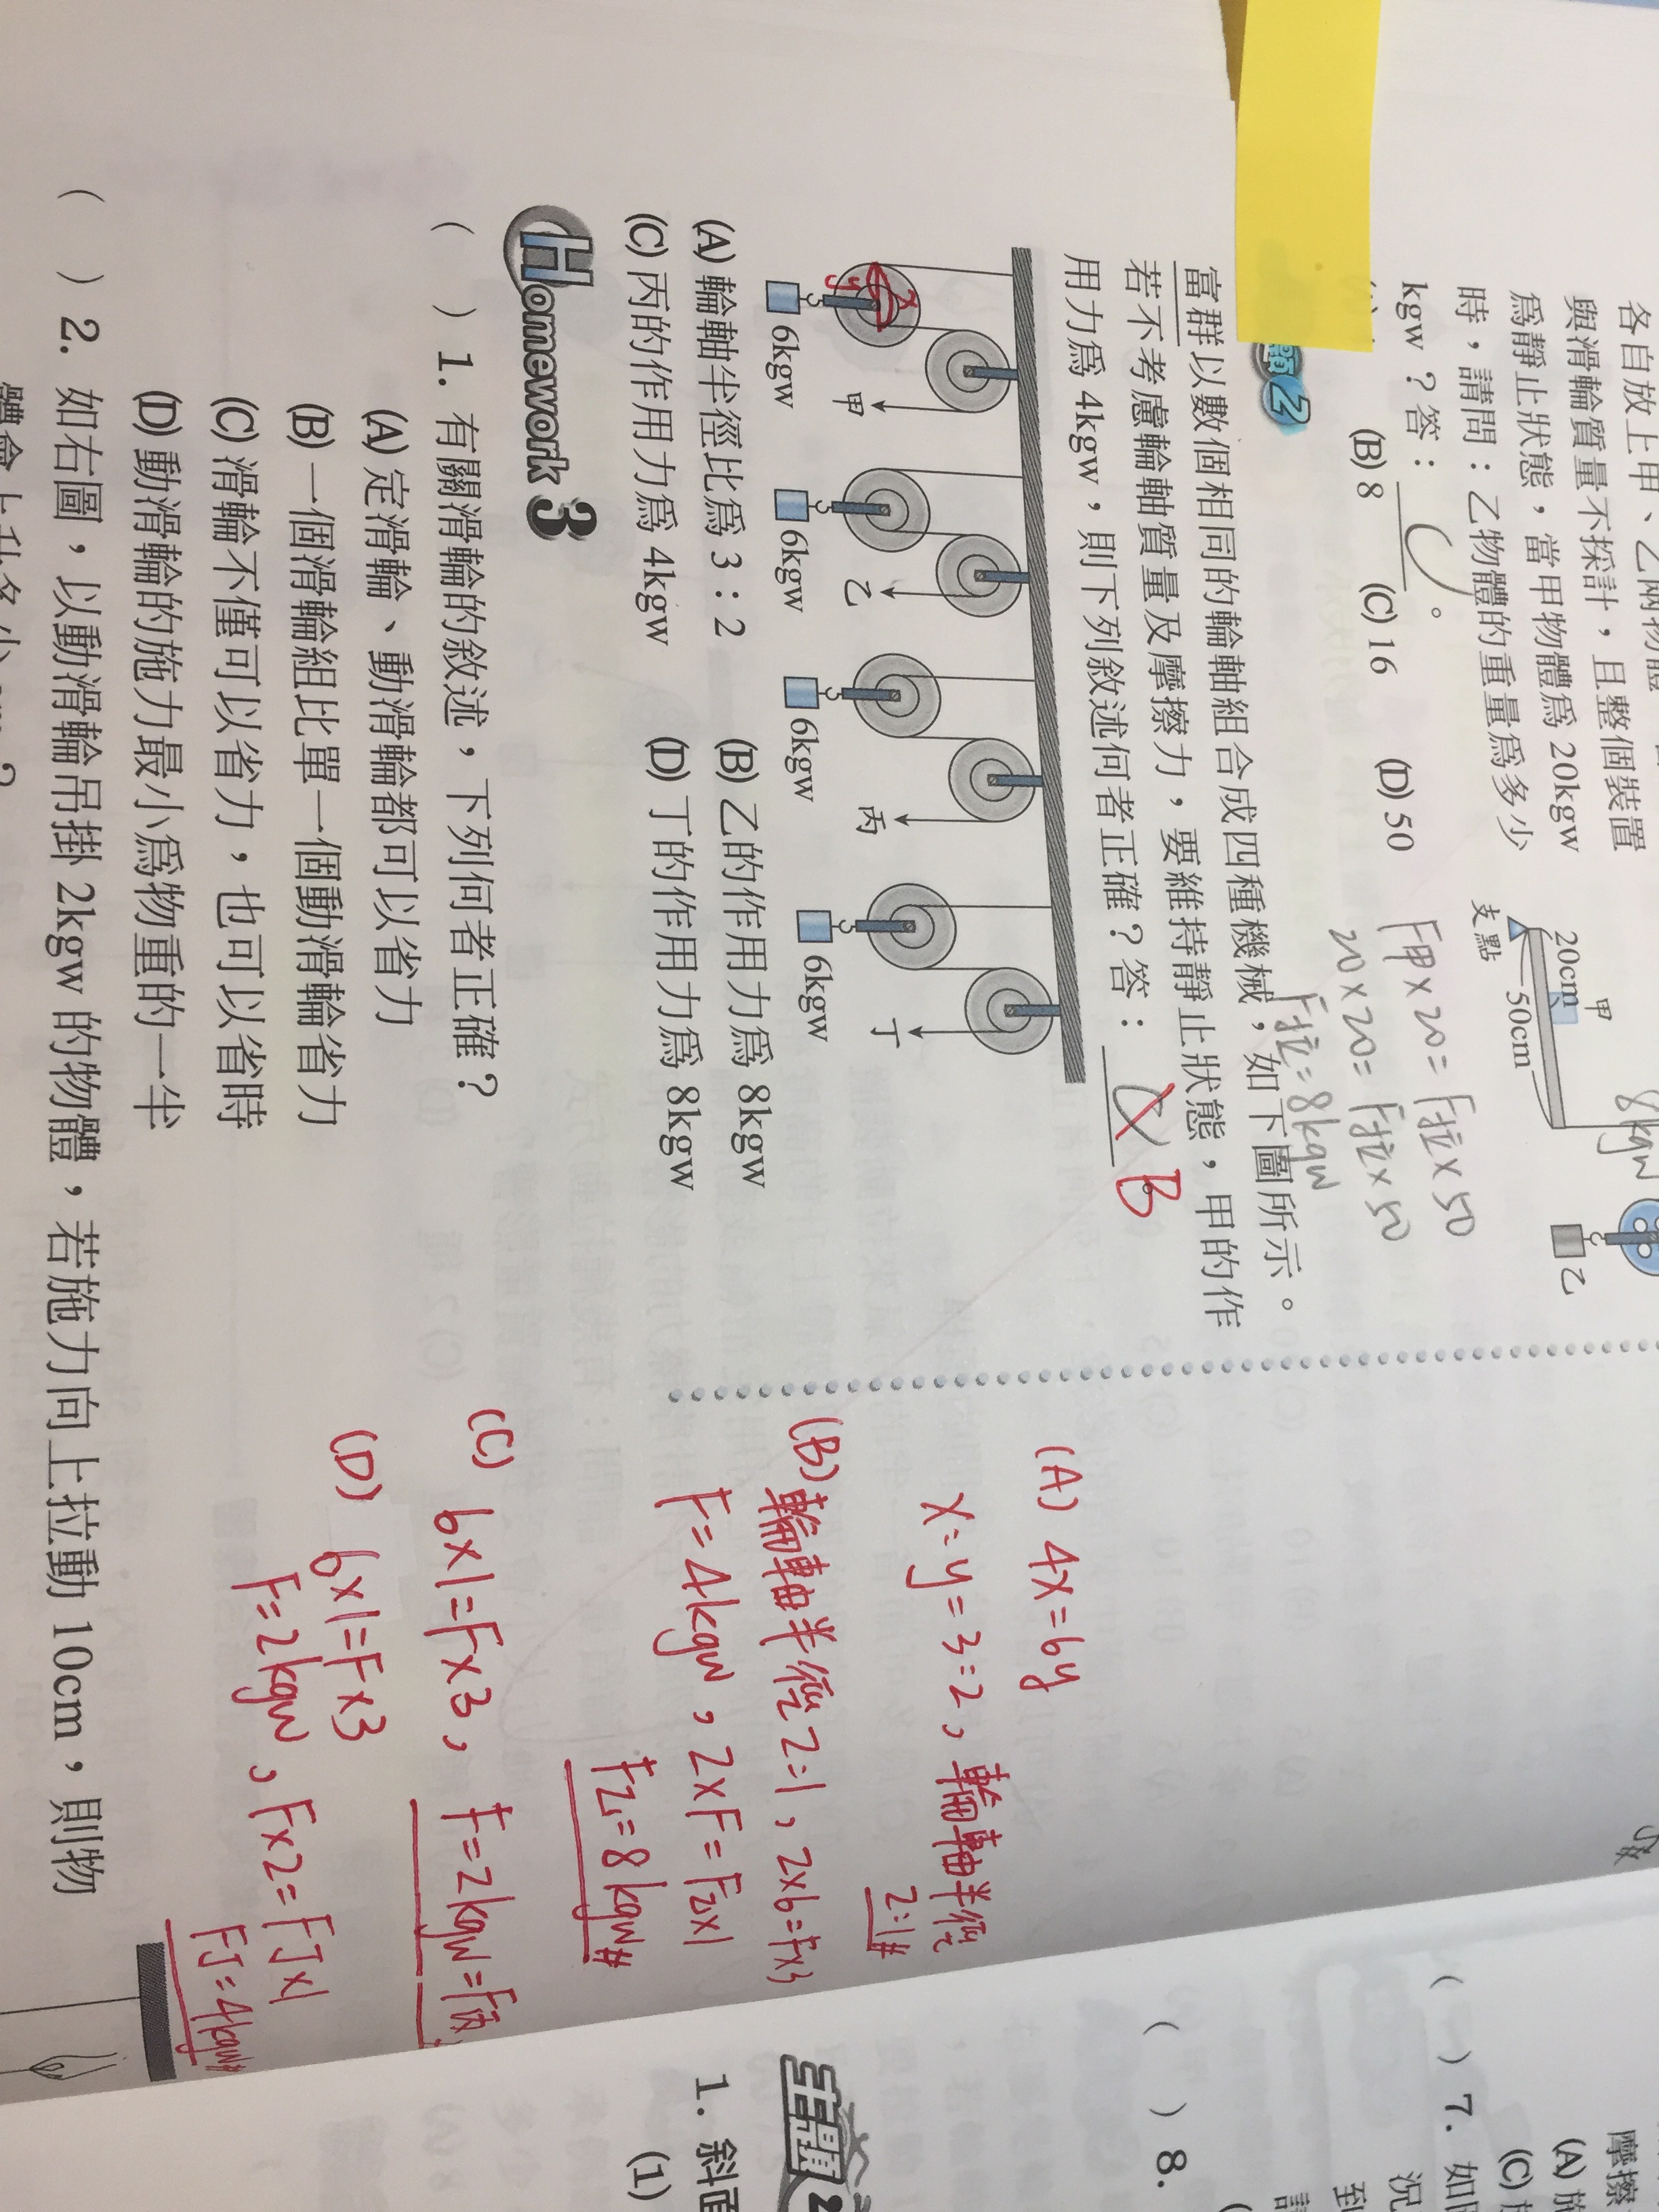 各自放上甲、乙兩物體
與滑輪質量不採計，且整個裝置
爲靜止狀態，當甲物體爲 20kgw
時，請問：乙物體的重量爲多少
kgw？答：C。
(B) 8 (C) 16 (D) 50
甲
20cm
50cm
支點
8kgw
乙
F甲×20=F拉×50
20×20=F拉×50
F拉=8kgw
題2
富群以數個相同的輪軸組合成四種機械，如下圖所示。
若不考慮輪軸質量及摩擦力，要維持靜止狀態，甲的作
用力爲 4kgw，則下列敘述何者正確？答：C B
x
y
甲
乙
丙
丁
6kgw
6kgw
6kgw
6kgw
(A) 輪軸半徑比爲 3：2 (B) 乙的作用力爲 8kgw
(C) 丙的作用力爲 4kgw (D) 丁的作用力爲 8kgw
Homework 3
( ) 1. 有關滑輪的敘述，下列何者正確？
(A) 定滑輪、動滑輪都可以省力
(B) 一個滑輪組比單一個動滑輪省力
(C) 滑輪不僅可以省力，也可以省時
(D) 動滑輪的施力最小爲物重的一半
( ) 2. 如右圖，以動滑輪吊掛 2kgw 的物體，若施力向上拉動 10cm，則物
體會上升多少 cm？
(A) 4x=6y
x:y=3:2，輪軸半徑
2:1#
(B) 輪軸半徑2:1，2×6=F×3
F=4kgw，2×F=F乙×1
F乙=8kgw#
(C) 6×1=F×3，F=2kgw=F丙
(D) 6×1=F×3
F=2kgw，F×2=F丁×1
F丁=4kgw#
( ) 7. 如
( ) 8.
摩擦
(A)
(C)
況
到
1. 斜面
(1)